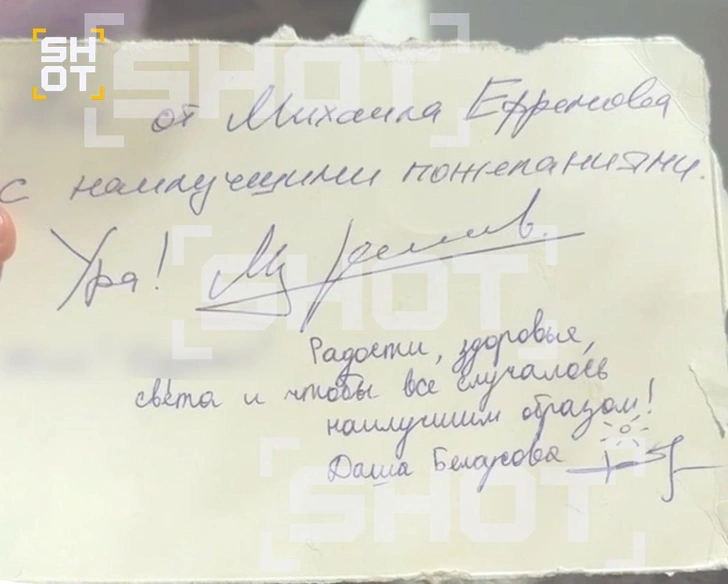 SHOT
от Михаила Ефремова
с наилучшими пожеланиями.
Ура!
Радости, здоровья,
света и чтобы все случалось
наилучшим образом!
Даша Белоусова
SHOT
SHOT
SHOT